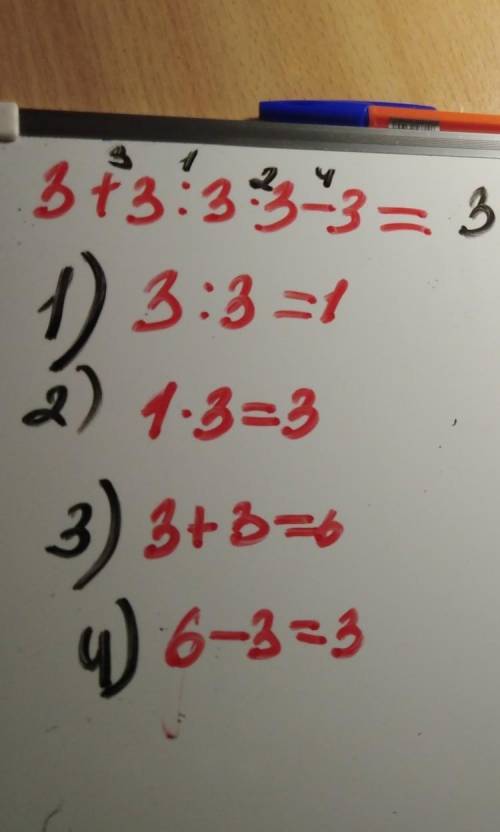 3 1 2 4
3+3:3·3-3= 3
1) 3:3=1
2) 1·3=3
3) 3+3=6
4) 6-3=3